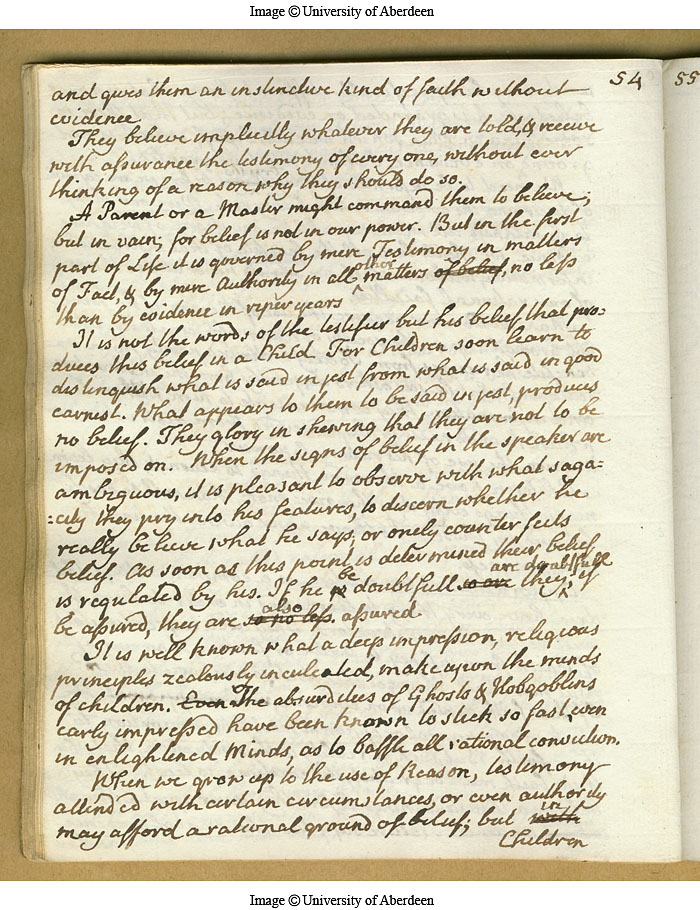 Image © University of Aberdeen
54
55
and gives them an instinctive kind of faith without
evidence
They believe implicitly whatever they are told, & receive
with assurance the testimony of every one, without ever
thinking of a reason why they should do so.
A Parent or a Master might command them to believe;
but in vain; for belief is not in our power. But in the first
part of Life it is governed by mere Testimony in matters
of Fact, & by mere Authority in all other matters of belief, no less
than by evidence in riper years
It is not the words of the testifier but his belief that pro:
duces this belief in a Child. For Children soon learn to
distinguish what is said in jest from what is said in good
earnest. What appears to them to be said in jest, produces
no belief. They glory in shewing that they are not to be
imposed on. When the signs of belief in the speaker are
ambiguous, it is pleasant to observe with what saga:
:city they pry into his features, to discern whether he
really believe what he says, or onely counterfeits
belief. As soon as this point is determined their belief
is regulated by his. If he be doubtfull so are they are doubtfull, if
be assured, they are so no less also assured
It is well known what a deep impression, religious
principles zealously inculcated, make upon the minds
of children. Even The absurdities of Ghosts & Hobgoblins
early impressed have been known to stick so fast, even
in enlightened Minds, as to baffle all rational conviction.
When we grow up to the use of Reason, testimony
attended with certain circumstances, or even authority
may afford a rational ground of belief; but with in
Children
Image © University of Aberdeen